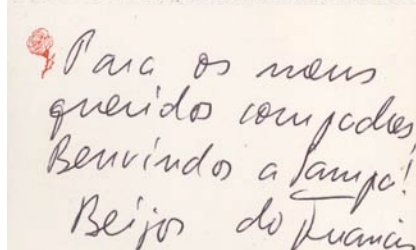 Para os meus
queridos compadres,
Benvindos a Sampa!
Beijos do